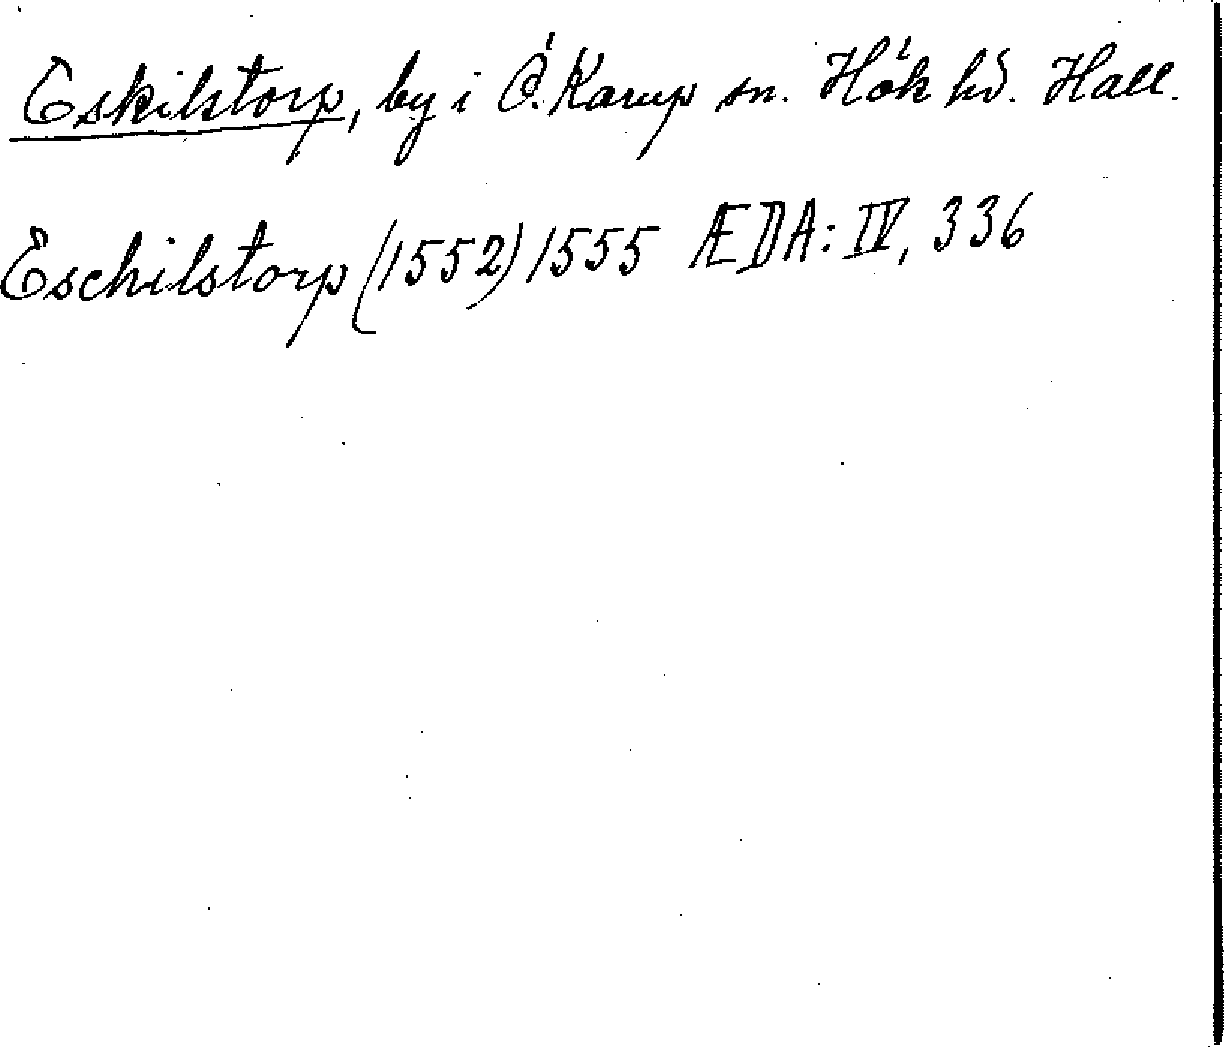 Eskilstorp, by i Ö. Karup sn. Hök hd. Hall.
Eschilstorp (1552) 1555 ÆDA: IV, 336